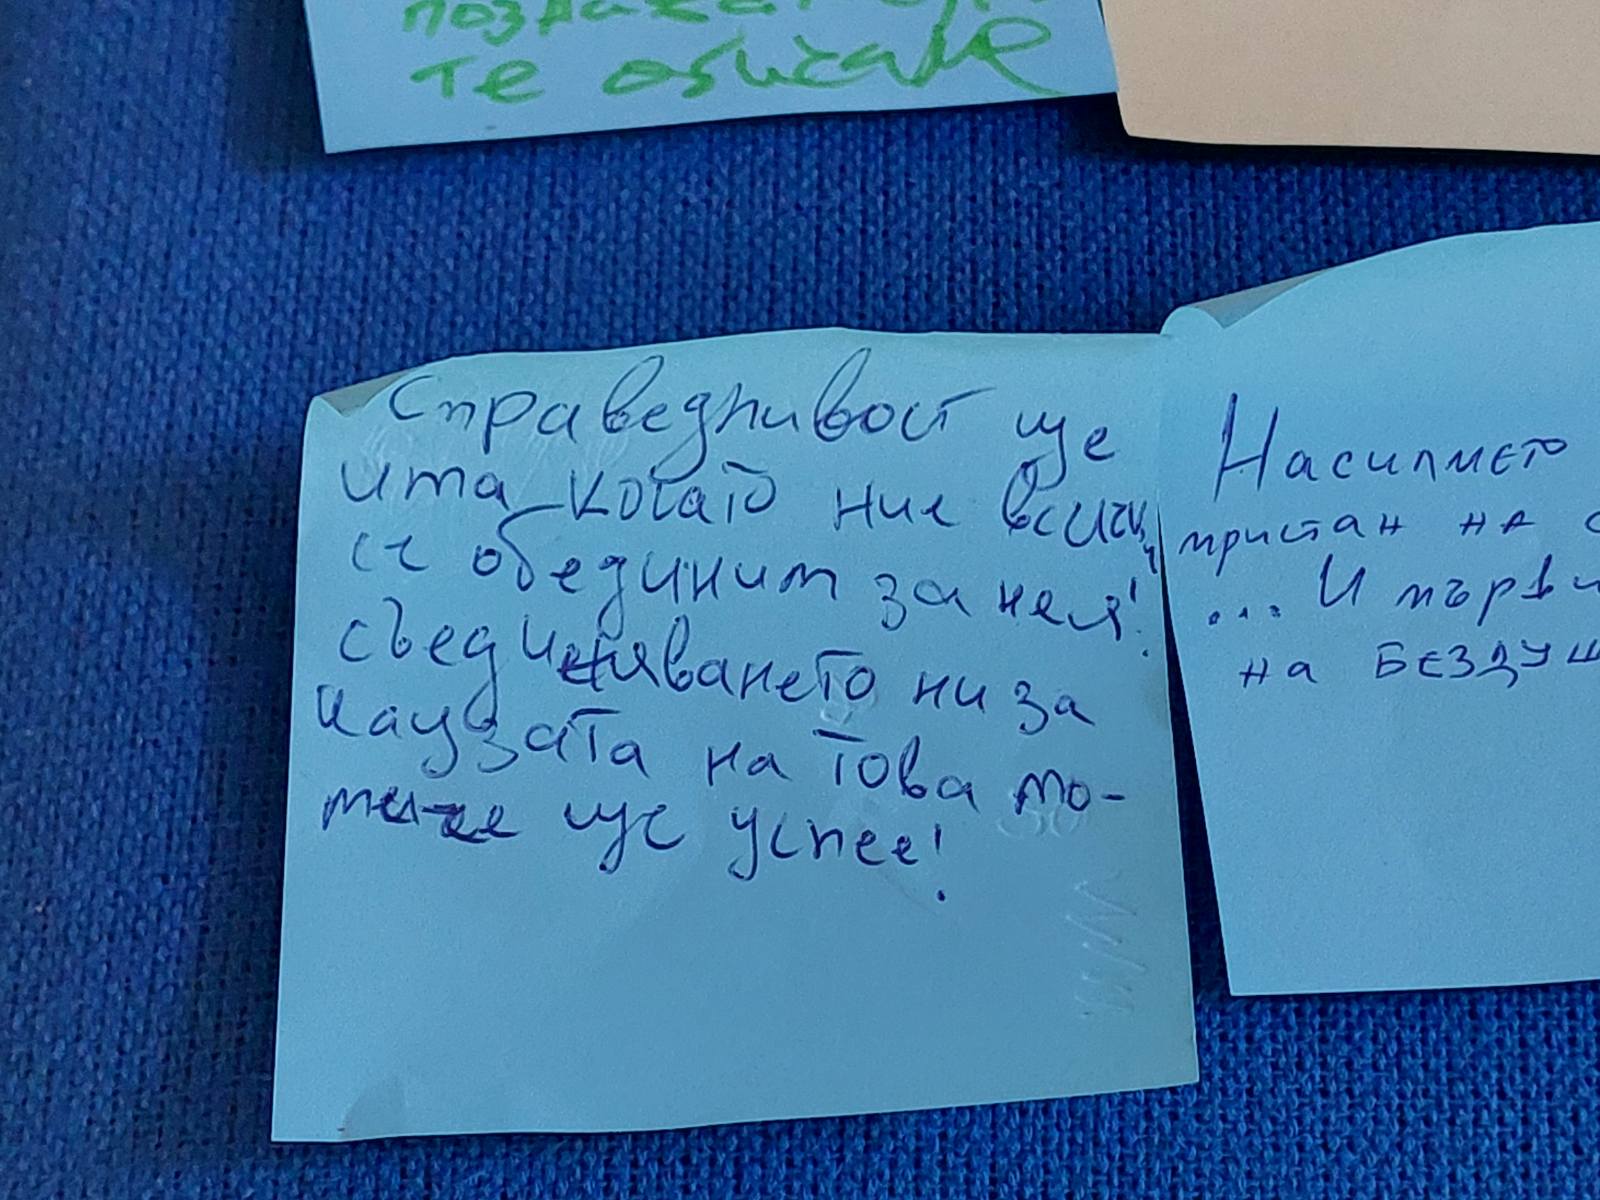 те обичаме
Справедливост ще
има когато ние всички
се обединим за нея!
Съединяването ни за
каузата на това мо-
ще успее!
Насилието
пристан на
... И първи
на БЕЗДУШ